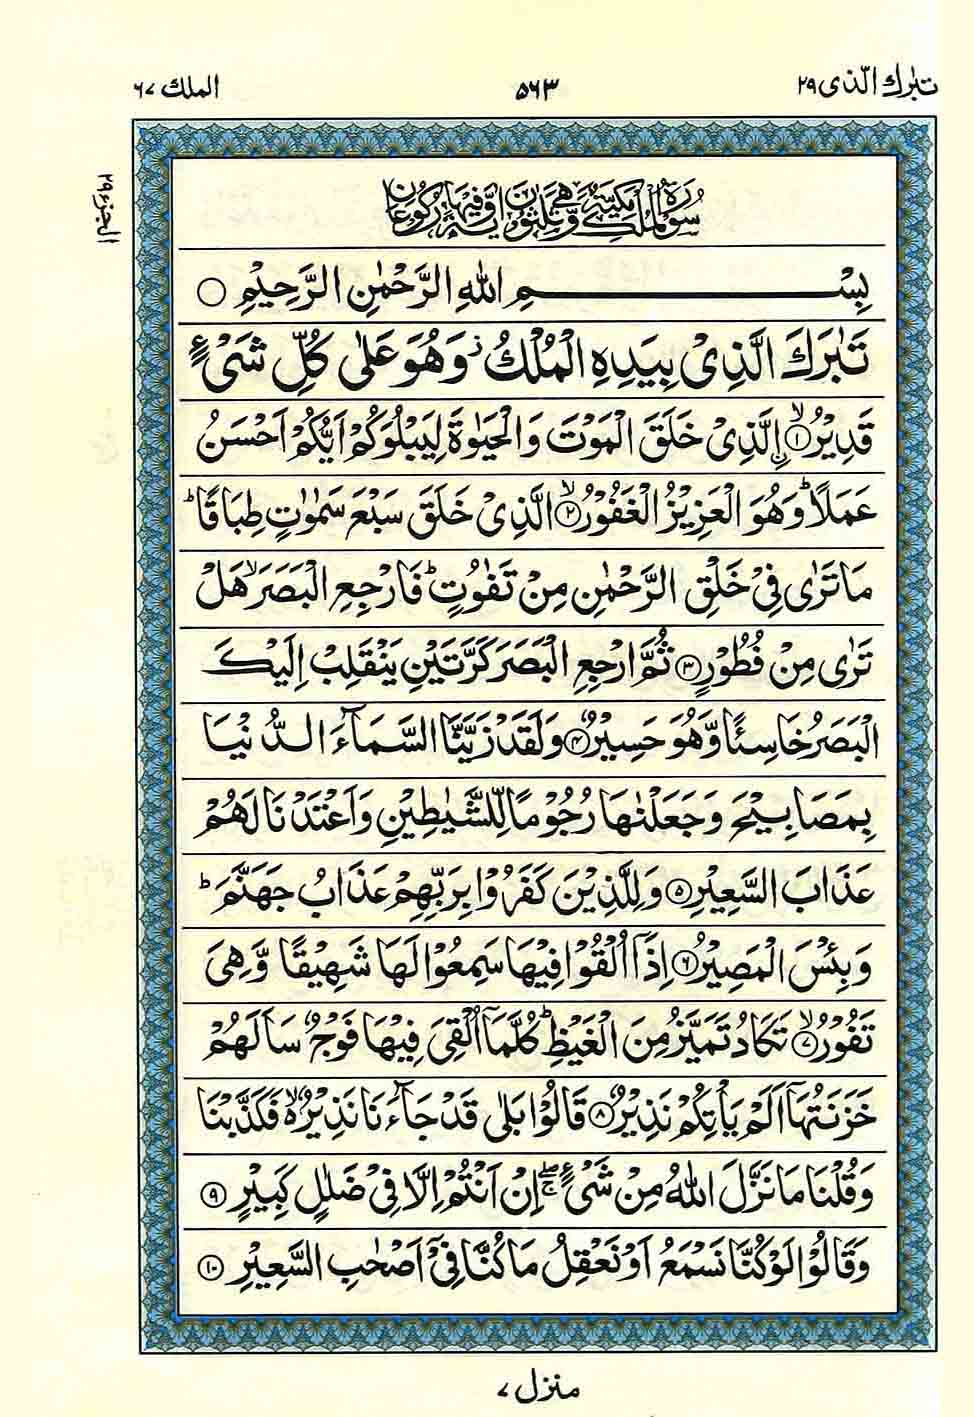 تبٰرك الّذی ۲۹
۵۶۳
الملك ۶۷
الجزء ۲۹
سُوْرَةُ الْمُلْكِ مَكِّيَّةٌ وَّهِيَ ثَلٰثُوْنَ اٰيَةً وَّفِيْهَا رُكُوْعَانِ
بِسْمِ اللّٰهِ الرَّحْمٰنِ الرَّحِيْمِ ○
تَبٰرَكَ الَّذِیْ بِیَدِهِ الْمُلْكُ ز وَهُوَ عَلٰی كُلِّ شَیْءٍ
قَدِیْرُ ۙ﴿۱﴾ ۨالَّذِیْ خَلَقَ الْمَوْتَ وَالْحَیٰوةَ لِیَبْلُوَكُمْ اَیُّكُمْ اَحْسَنُ
عَمَلًا ؕ وَهُوَ الْعَزِیْزُ الْغَفُوْرُ ۙ﴿۲﴾ الَّذِیْ خَلَقَ سَبْعَ سَمٰوٰتٍ طِبَاقًا ؕ
مَا تَرٰی فِیْ خَلْقِ الرَّحْمٰنِ مِنْ تَفٰوُتٍ ؕ فَارْجِعِ الْبَصَرَ ۙ هَلْ
تَرٰی مِنْ فُطُوْرٍ ﴿۳﴾ ثُمَّ ارْجِعِ الْبَصَرَ كَرَّتَیْنِ یَنْقَلِبْ اِلَیْكَ
الْبَصَرُ خَاسِئًا وَّهُوَ حَسِیْرٌ ﴿۴﴾ وَلَقَدْ زَیَّنَّا السَّمَآءَ الدُّنْیَا
بِمَصَابِیْحَ وَجَعَلْنٰهَا رُجُوْمًا لِّلشَّیٰطِیْنِ وَاَعْتَدْنَا لَهُمْ
عَذَابَ السَّعِیْرِ ﴿۵﴾ وَلِلَّذِیْنَ كَفَرُوْا بِرَبِّهِمْ عَذَابُ جَهَنَّمَ ؕ
وَبِئْسَ الْمَصِیْرُ ﴿۶﴾ اِذَاۤ اُلْقُوْا فِیْهَا سَمِعُوْا لَهَا شَهِیْقًا وَّهِیَ
تَفُوْرُ ۙ﴿۷﴾ تَكَادُ تَمَیَّزُ مِنَ الْغَیْظِ ؕ كُلَّمَاۤ اُلْقِیَ فِیْهَا فَوْجٌ سَاَلَهُمْ
خَزَنَتُهَاۤ اَلَمْ یَاْتِكُمْ نَذِیْرٌ ﴿۸﴾ قَالُوْا بَلٰی قَدْ جَآءَنَا نَذِیْرٌ ۙ۬ فَكَذَّبْنَا
وَقُلْنَا مَا نَزَّلَ اللّٰهُ مِنْ شَیْءٍ ۖۚ اِنْ اَنْتُمْ اِلَّا فِیْ ضَلٰلٍ كَبِیْرٍ ﴿۹﴾
وَقَالُوْا لَوْ كُنَّا نَسْمَعُ اَوْ نَعْقِلُ مَا كُنَّا فِیْۤ اَصْحٰبِ السَّعِیْرِ ﴿۱۰﴾
منزل ۷